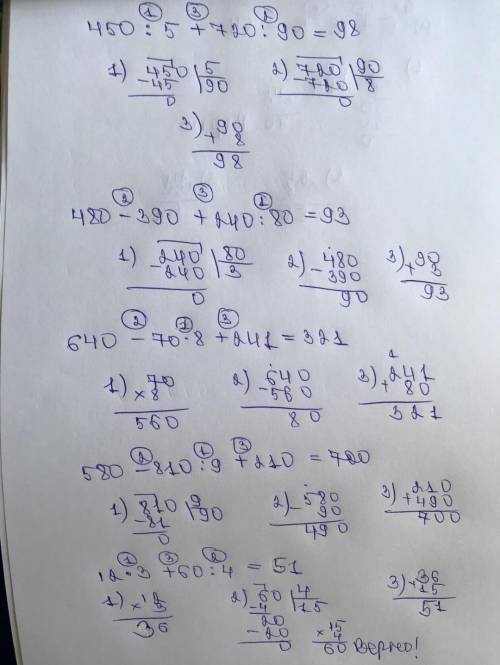 ① ③ ②
450 : 5 + 720 : 90 = 98
1) 450 5 2) 720 90
- 45 90 - 720 8
0 0
3) 90
+ 8
98
② ③ ①
480 - 390 + 240 : 80 = 93
1) 240 80 2) 480 3) 90
- 240 3 - 390 + 3
0 90 93
② ① ③
640 - 70 · 8 + 241 = 321
1) 70 2) 640 3) 241
× 8 - 560 + 80
560 80 321
② ① ③
580 - 810 : 9 + 210 = 700
1) 810 9 2) 580 3) 210
- 81 90 - 90 + 490
0 490 700
① ③ ②
12 · 3 + 60 : 4 = 51
1) 12 2) 60 4 3) 36
× 3 - 4 15 + 15
36 20 51
- 20 15
0 × 4
60 Верно!